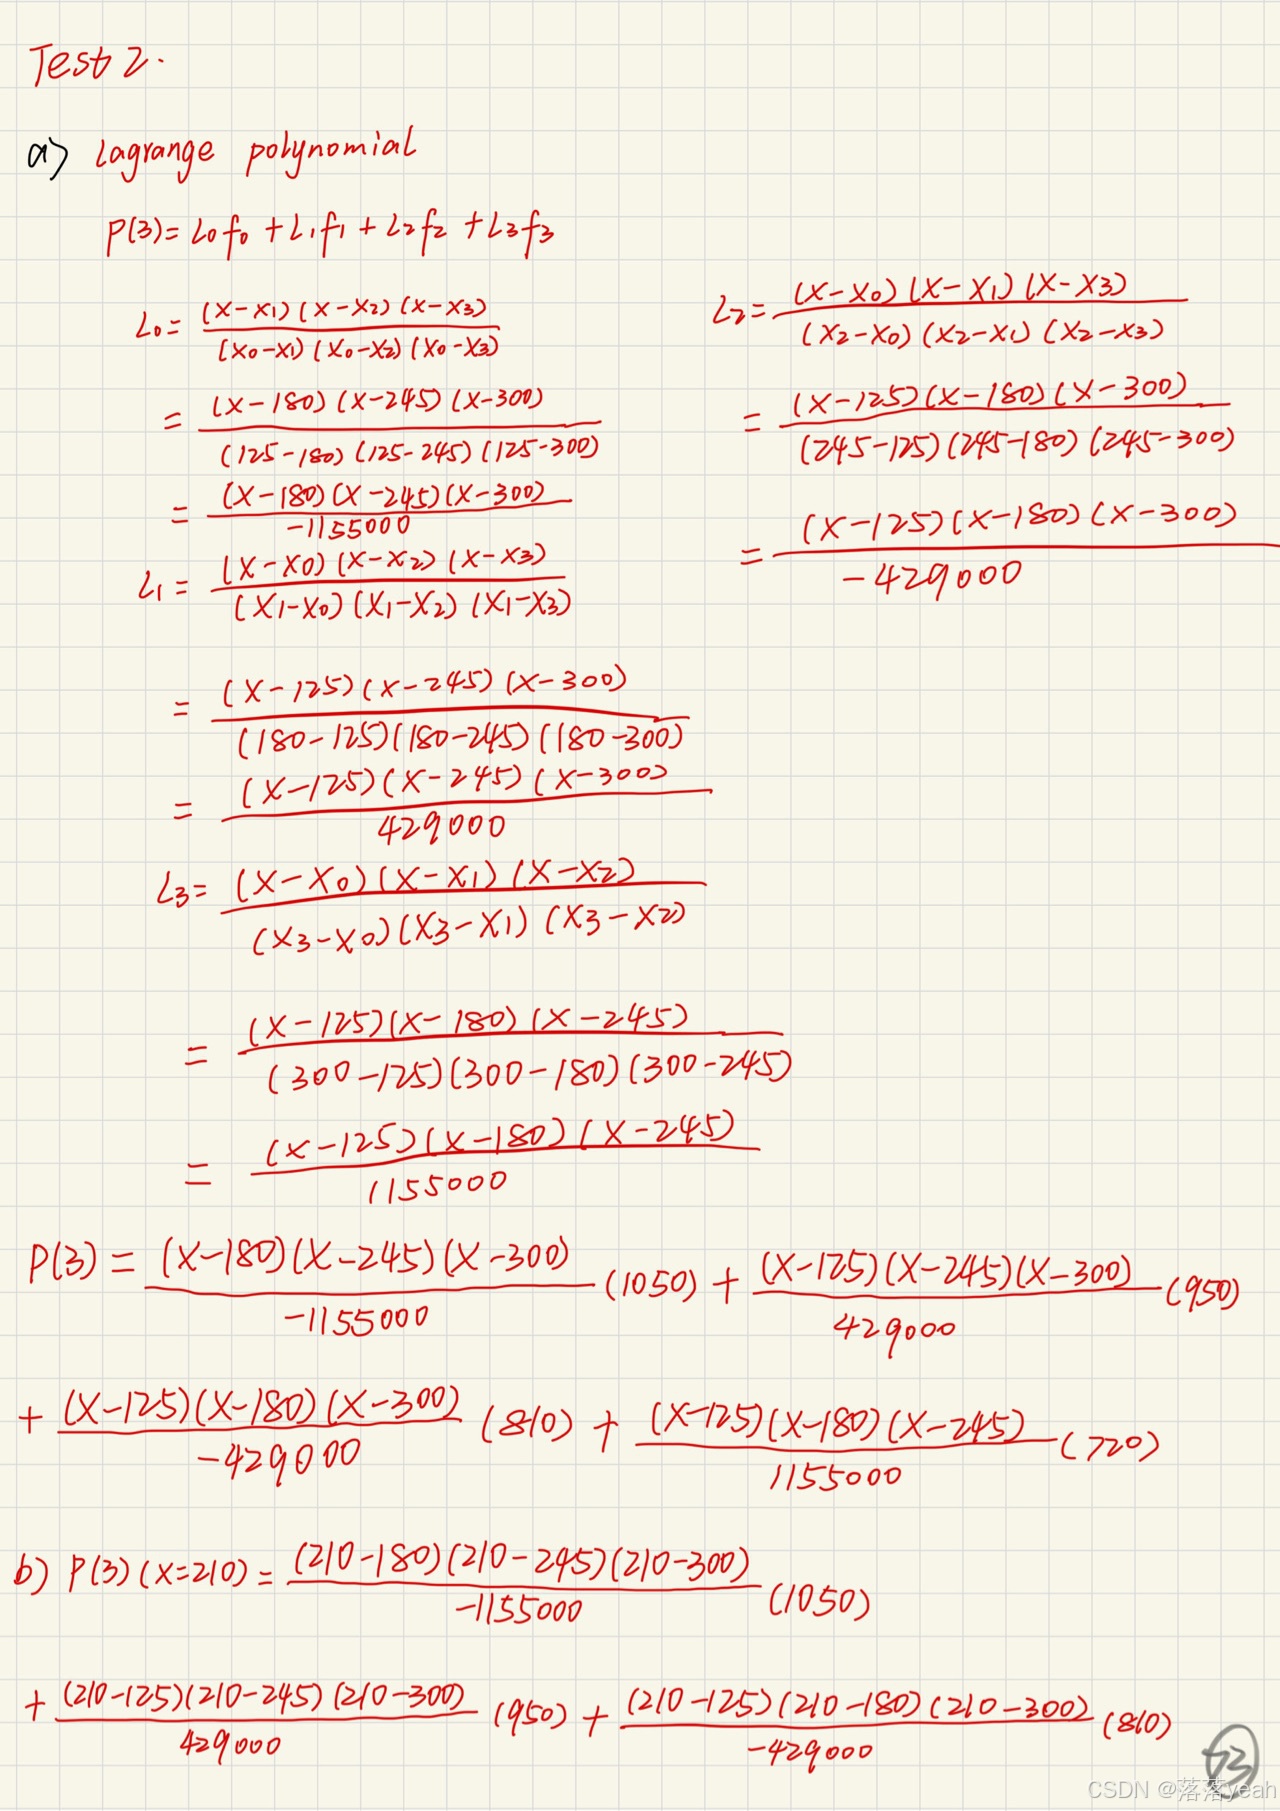 Test 2.
a) Lagrange polynomial
P(3)= L0f0 + L1f1 + L2f2 + L3f3
L0= (x-x1)(x-x2)(x-x3) / (x0-x1)(x0-x2)(x0-x3)
= (x-180)(x-245)(x-300) / (125-180)(125-245)(125-300)
= (x-180)(x-245)(x-300) / -1155000
L1= (x-x0)(x-x2)(x-x3) / (x1-x0)(x1-x2)(x1-x3)
= (x-125)(x-245)(x-300) / (180-125)(180-245)(180-300)
= (x-125)(x-245)(x-300) / 429000
L2= (x-x0)(x-x1)(x-x3) / (x2-x0)(x2-x1)(x2-x3)
= (x-125)(x-180)(x-300) / (245-125)(245-180)(245-300)
= (x-125)(x-180)(x-300) / -429000
L3= (x-x0)(x-x1)(x-x2) / (x3-x0)(x3-x1)(x3-x2)
= (x-125)(x-180)(x-245) / (300-125)(300-180)(300-245)
= (x-125)(x-180)(x-245) / 1155000
P(3) = (x-180)(x-245)(x-300) / -1155000 (1050) + (x-125)(x-245)(x-300) / 429000 (950)
+ (x-125)(x-180)(x-300) / -429000 (810) + (x-125)(x-180)(x-245) / 1155000 (720)
b) P(3)(x=210) = (210-180)(210-245)(210-300) / -1155000 (1050)
+ (210-125)(210-245)(210-300) / 429000 (950) + (210-125)(210-180)(210-300) / -429000 (810)
CSDN @落落yeah